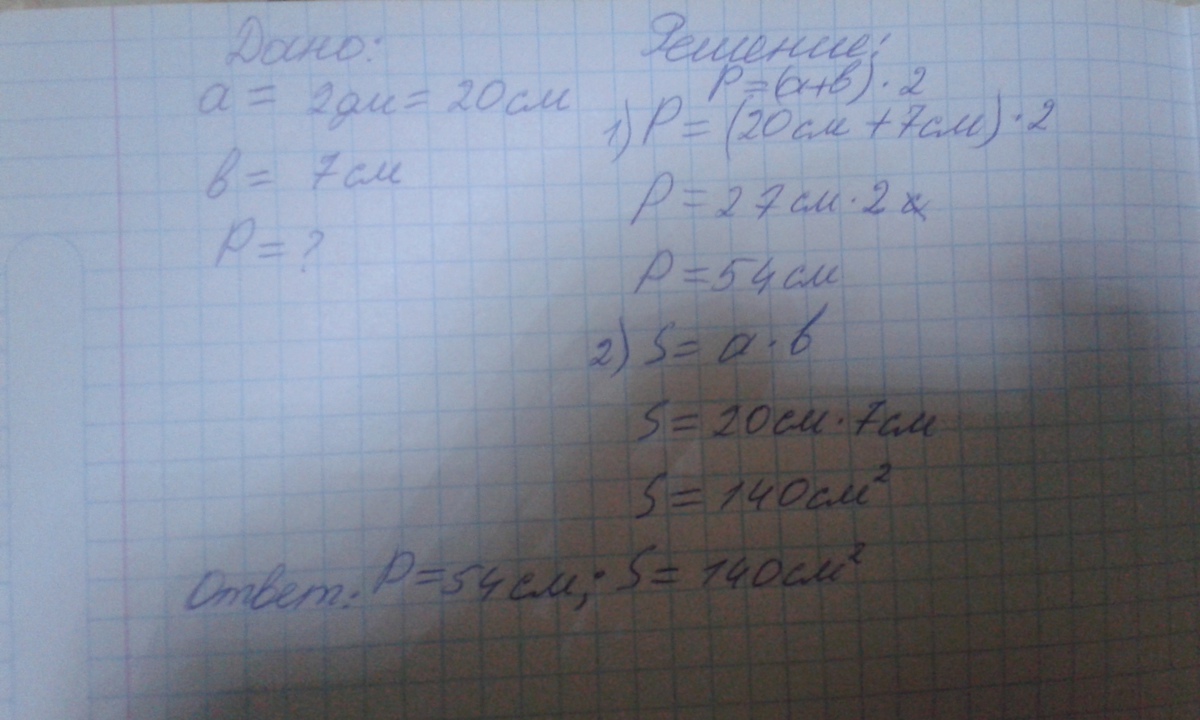 Дано:
а = 2дм = 20см
в = 7см
Р = ?
Решение:
Р = (а+в) · 2
1) Р = (20см + 7см) · 2
Р = 27см · 2
Р = 54см
2) S = а · в
S = 20см · 7см
S = 140см²
Ответ: Р = 54см; S = 140см²